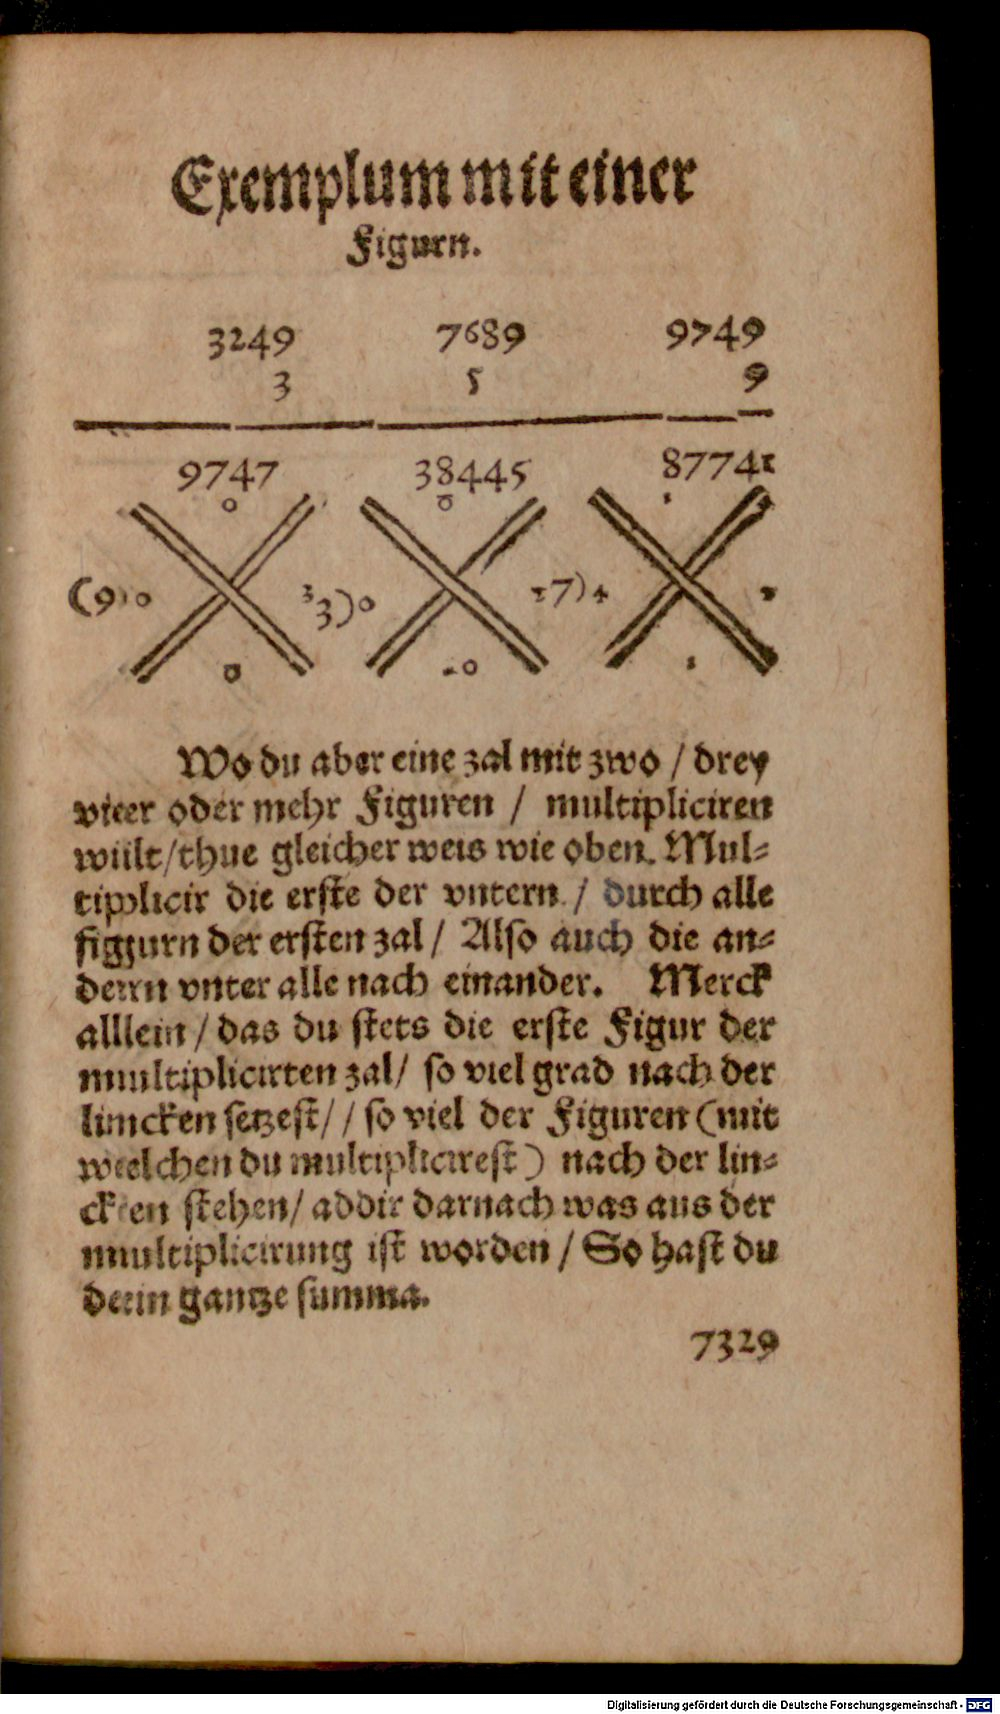 Exemplum mit einer
Figurn.
3249 7689 9749
3 5 9
9747 38445 87741
0 0
(9 0 3 3) 0 17) 4
0 0
Wo du aber eine zal mit zwo / drey
vieer oder mehr Figuren / multipliciren
wiilt/thue gleicher weis wie oben. Mul⸗
tipplicir die erste der vntern / durch alle
figgurn der ersten zal / Also auch die an⸗
derrn vnter alle nach einander. Merck
alllein / das du stets die erste Figur der
muultiplicirten zal/ so viel grad nach der
limcken setzest/ / so viel der Figuren (mit
weelchen du multiplicirest) nach der lin⸗
ckeen stehen/ addir darnach was aus der
muultiplicirung ist worden / So hast du
deein gantze summa.
7329
Digitalisierung gefördert durch die Deutsche Forschungsgemeinschaft - DFG